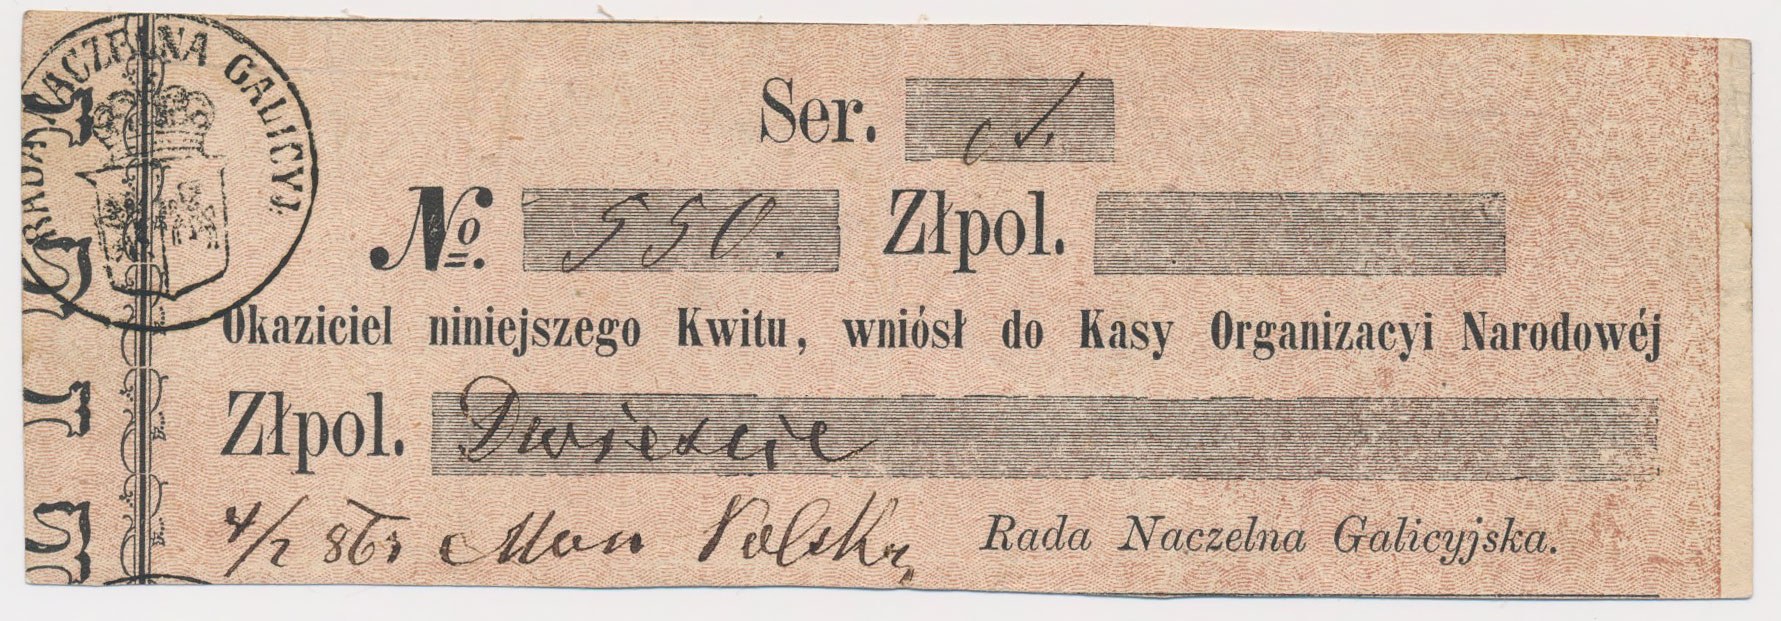 RADA NACZELNA GALICYJ.
Ser.
No. 550. Złpol.
Okaziciel niniejszego Kwitu, wniósł do Kasy Organizacyi Narodowéj
Złpol. Dwieście
4/2 863 Mon Polską Rada Naczelna Galicyjska.